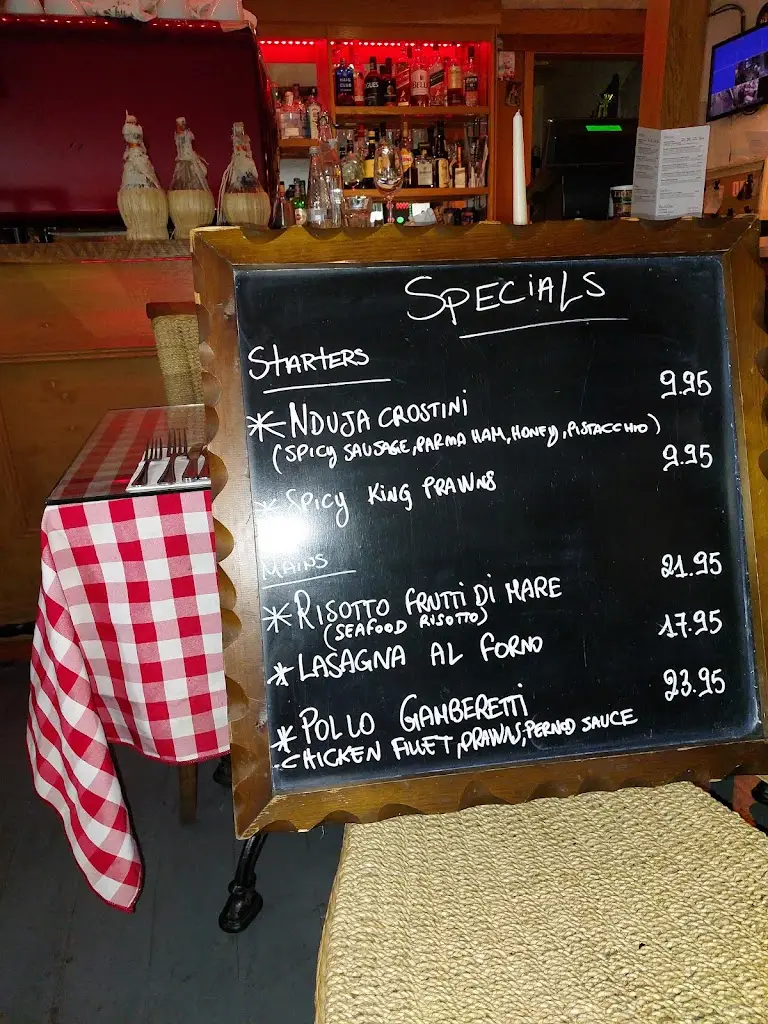 SPECIALS
STARTERS
* NDUJA CROSTINI 9.95
(SPICY SAUSAGE, PARMA HAM, HONEY, PISTACCHIO)
* SPICY KING PRAWNS 9.95
MAINS
* RISOTTO FRUTTI DI MARE 21.95
(SEAFOOD RISOTTO)
* LASAGNA AL FORNO 17.95
* POLLO GAMBERETTI 23.95
CHICKEN FILLET, PRAWNS, PERNOD SAUCE